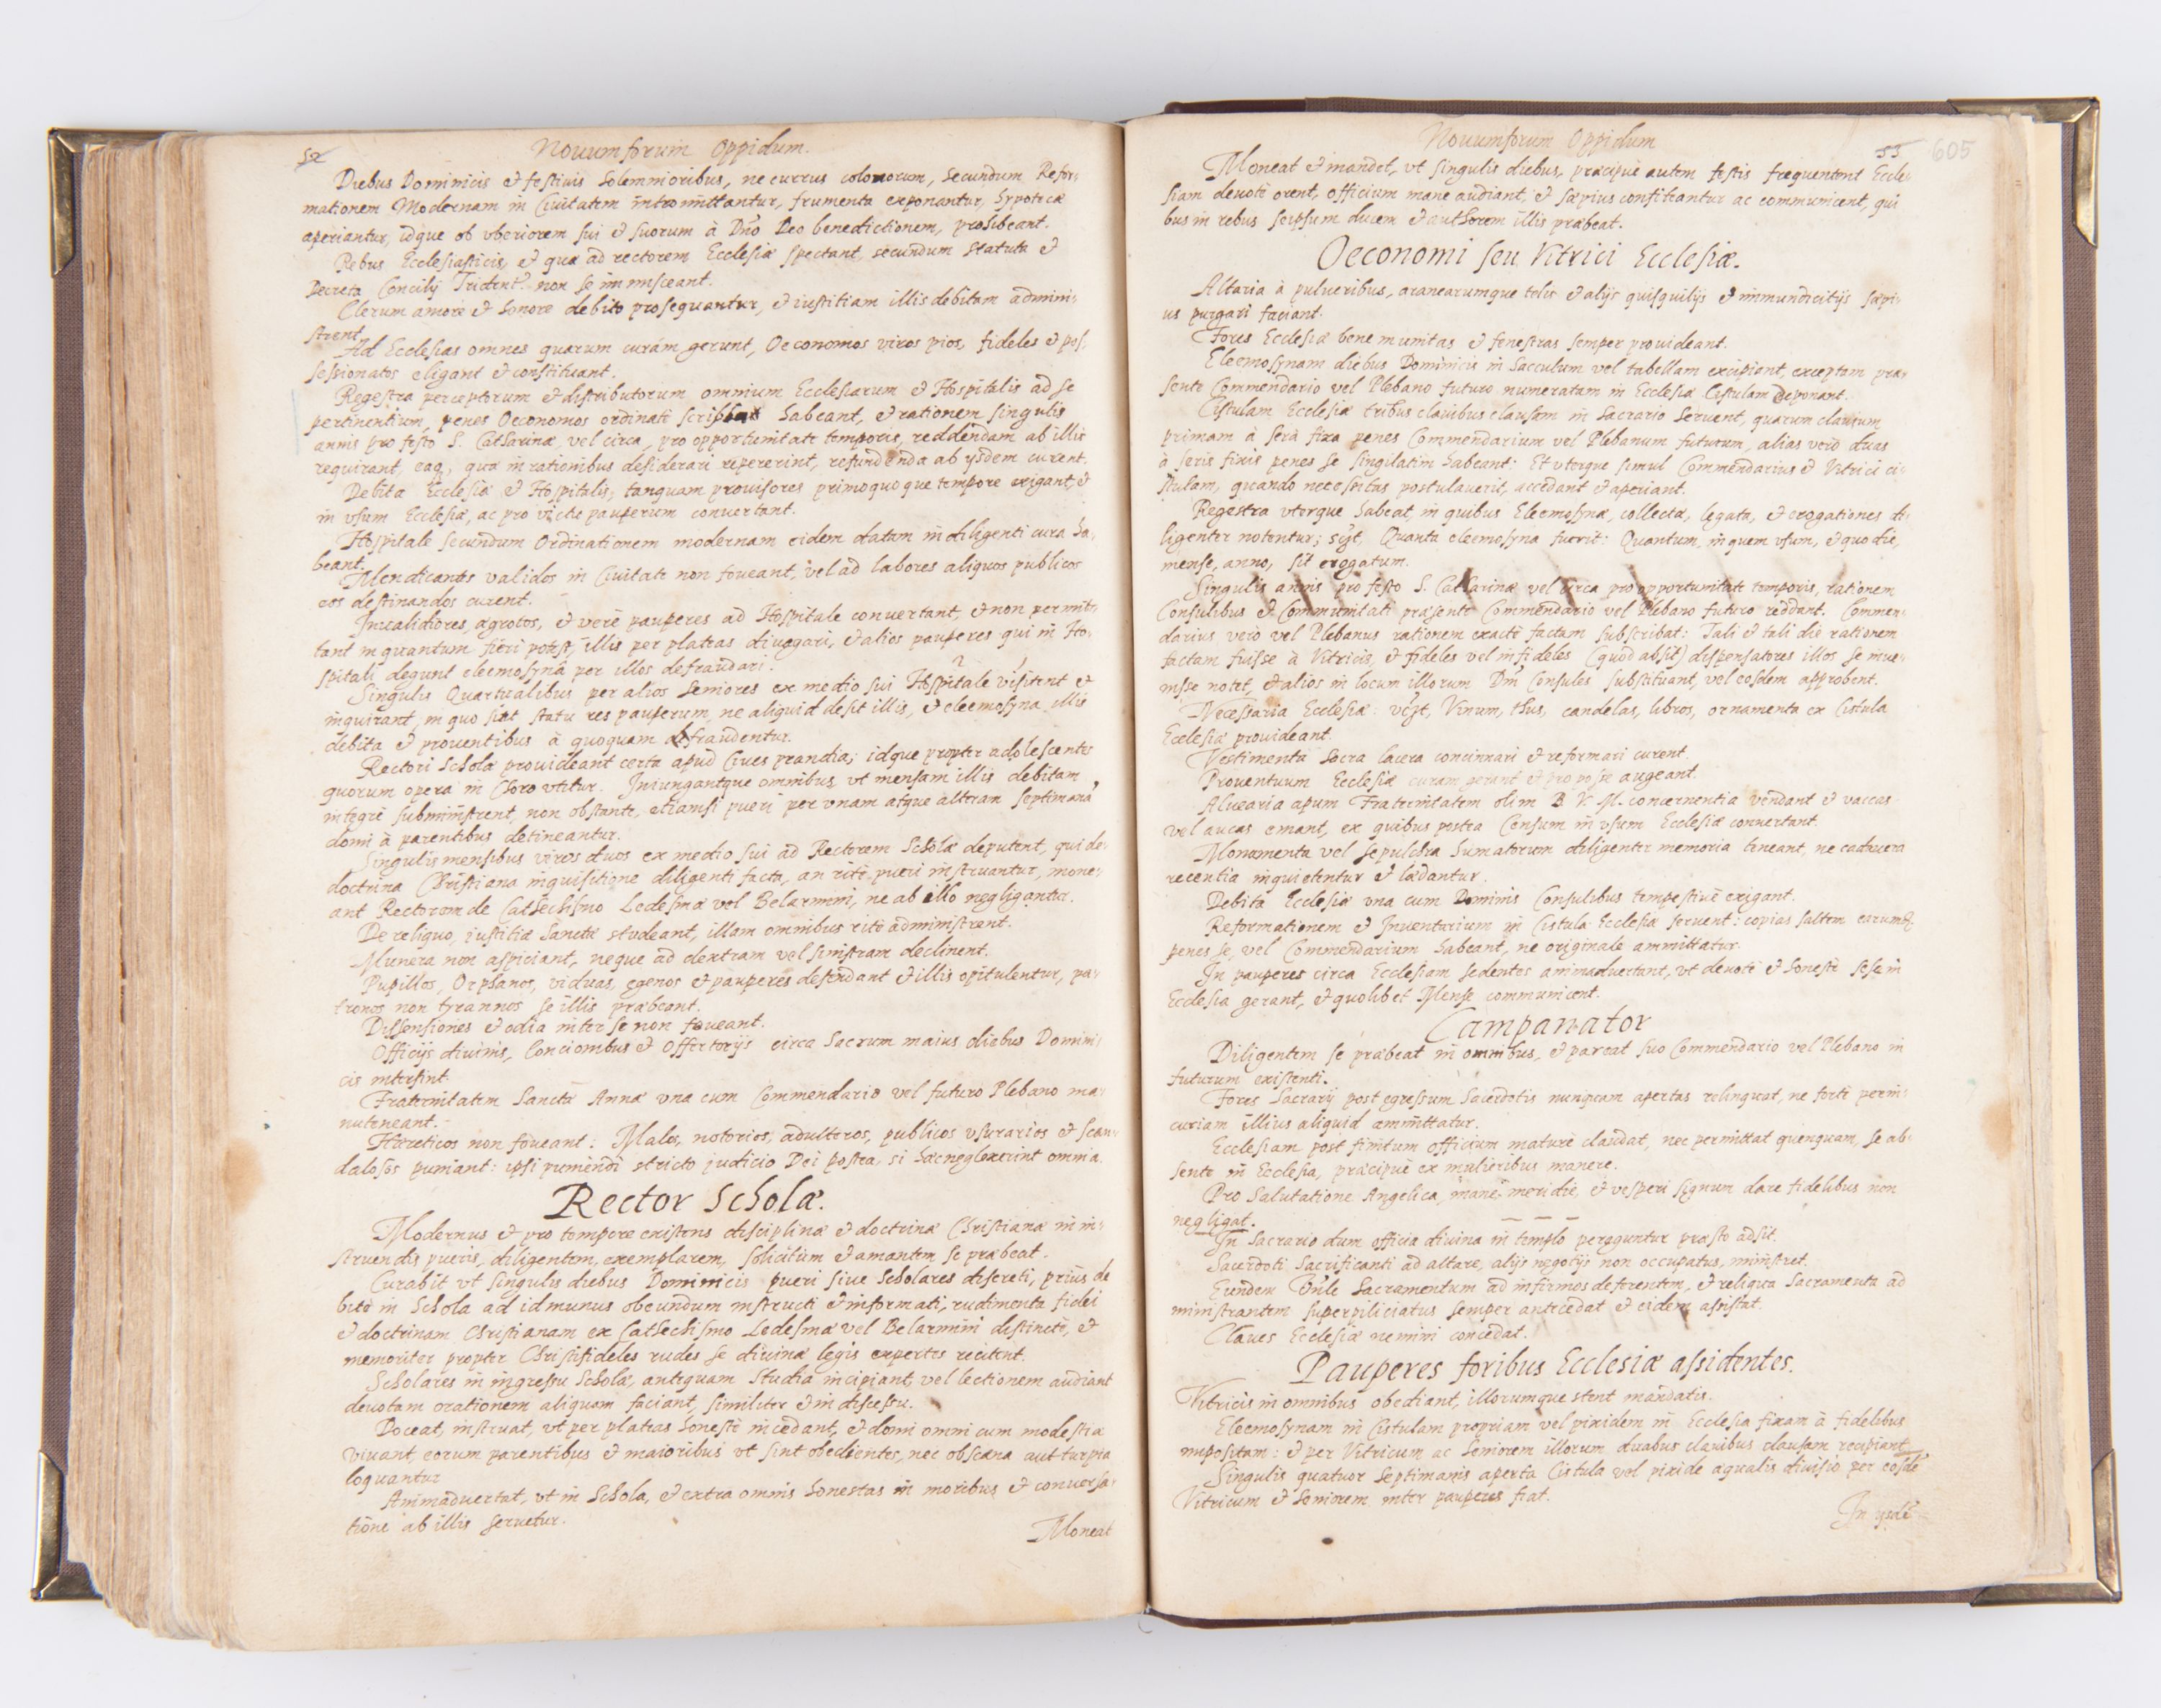 52
Nouum forum Oppidum.
Diebus Dominicis et festiuis solemnioribus, ne currus colonorum, secundum Refor-
mationem Modernam in Ciuitatem intromittantur, frumenta exponantur, hypotecæ
aperiantur, idque ob vberiorem sui et suorum à Dño Deo benedictionem, prohibeant.
Rebus Ecclesiasticis, et quæ ad rectorem Ecclesiæ spectant, secundum Statuta et
Decreta Concilij Trident. non se immisceant.
Clerum amore et honore debito prosequantur, et iustitiam illis debitam admini-
strent.
Ad Ecclesias omnes quarum curam gerunt, Oeconomos viros pios, fideles et pos-
sessionatos eligant et constituant.
Regestra perceptorum et distributorum omnium Ecclesiarum et Hospitalis ad se
pertinentium, penes Oeconomos ordinati habeant, et rationem singulis
annis pro festo S. Catharinæ vel circa, pro opportunitate temporis, reddendam ab illis
requirant, eaq, quæ in rationibus desiderari repererint, refundenda ab ysdem curent.
Debita Ecclesiæ et Hospitalis, tanquam prouisores primo quoque tempore exigant, et
in vsum Ecclesiæ, ac pro victu pauperum conuertant.
Hospitale secundum Ordinationem modernam eidem datam in diligenti cura ha-
beant.
Mendicantes validos in Ciuitate non foueant, vel ad labores aliquos publicos
eos destinandos curent.
Inualidiores, ægrotos, et verè pauperes ad Hospitale conuertant, et non permit-
tant in quantum fieri potest, illis per plateas diuagari, et alios pauperes qui in Ho-
spitali degunt eleemosynâ per illos defraudari.
Singulis Quartualibus per alios Seniores ex medio sui Hospitale visitent et
inquirant, in quo sint statu res pauperum, ne aliquid desit illis, et eleemosyna illis
debita et prouentibus à quoquam defraudentur.
Rectori Scholæ prouideant certa apud Ciues prandia; idque propter adolescentes
quorum opera in Choro vtitur. Iniungantque omnibus, vt mensam illis debitam
integrè subministrent, non obstante, etiamsi pueri per vnam atque alteram septimanã
domi à parentibus detineantur.
Singulis mensibus viros duos ex medio sui ad Rectorem Scholæ deputent, qui de
doctrina Christiana inquisitione diligenti facta, an ritè pueri instruantur, mone-
ant Rectorem de Cathechismo Ledesmæ vel Belarmini, ne ab illo negligantur.
De reliquo, iustitiæ Sanctæ studeant, illam omnibus ritè administrent.
Munera non aspiciant, neque ad dextram vel sinistram declinent.
Pupillos, Orphanos, viduas, egenos et pauperes defendant et illis opitulentur, pa-
tronos non tyrannos se illis præbeant.
Dissensiones et odia inter se non foueant.
Officijs diuinis, Concionibus et Offertorijs circa Sacrum maius diebus Domini-
cis intersint.
Fraternitatem Sanctæ Annæ vna cum Commendario vel futuro Plebano ma-
nuteneant.
Hæreticos non foueant: Malos, notorios, adulteros, publicos vsurarios et scan-
dalosos puniant: ipsi puniendi stricto judicio Dei postea, si hæc neglexerint omnia.
Rector Scholæ.
Modernus et pro tempore existens disciplinæ et doctrinæ Christianæ in in-
struendis pueris, diligentem, exemplarem, solicitum et amantem se præbeat.
Curabit vt singulis diebus Dominicis pueri siue Scholares discreti, prius de
bitè in Schola ad id munus obeundum instructi et informati, rudimenta fidei
et doctrinam Christianam ex Cathechismo Ledesmæ vel Belarmini distinctè, et
memoriter propter Christifideles rudes se diuinæ legis expertes recitent.
Scholares in ingressu Scholæ, antequam Studia incipiant, vel lectionem audiant
deuotam orationem aliquam faciant, similiter et in discessu.
Doceat, instruat, vt per plateas honestè incedant, et domi omni cum modestia
viuant, eorum parentibus et maioribus vt sint obedientes, nec obscæna aut turpia
loquantur
Animaduertat, vt in Schola, et extra omnis honestas in moribus et conuersa-
tione ab illis seruetur.
Moneat
Nouumforum Oppidum
53 605
Moneat et mandet, vt singulis diebus, præcipuè autem festis frequentent Eccle-
siam deuotè orent, officium mane audiant, et sæpius confiteantur ac communicent, qui
bus in rebus seipsum ducem et authorem illis præbeat.
Oeconomi seu Vitrici Ecclesiæ.
Altaria à pulueribus, aranearumque telis et alijs quisquilijs et immundicitijs sæpi-
us purgari faciant.
Fores Ecclesiæ bene munitas et fenestras semper prouideant.
Eleemosynam diebus Dominicis in Sacculum vel tabellam excipiant, exceptam præ-
sente Commendario vel Plebano futuro numeratam in Ecclesiæ Cistulam deponant.
Cistulam Ecclesiæ tribus clauibus clausam in Sacrario seruent, quarum clauium
primam à serà fixa penes Commendarium vel Plebanum futurum, alias verò duas
à seris fixis penes se singilatim habeant: Et vterque simul Commendarius et Vitrici ci-
stulam, quando necessitas postulauerit, accedant et aperiant.
Regestra vterque habeat, in quibus Eleemosynæ, collectæ, legata, et erogationes di-
ligenter notentur; Quanta eleemosyna fuerit: Quantum, in quem vsum, et quo die,
mense, anno, sit erogatum.
Singulis annis pro festo S. Catharinæ vel circa pro opportunitate temporis, rationem
Consulibus et Communitati præsente Commendario vel Plebano futuro reddant. Commen-
darius verò vel Plebanus rationem exactè factam subscribat: Tali et tali die rationem
factam fuisse à Vitricis, et fideles vel infideles (quod absit) dispensatores illos se inue-
nisse notet, et alios in locum illorum Dñi Consules substituant, vel eosdem approbent.
Necessaria Ecclesiæ: Vinum, thus, candelas, libros, ornamenta ex Cistula
Ecclesiæ prouideant.
Vestimenta sacra lacera concinnari et reformari curent.
Prouentuum Ecclesiæ curam gerant et pro posse augeant.
Aluearia apum Fraternitatem olim B. V. M. concernentia vendant et vaccas
vel aucas emant, ex quibus postea Censum in vsum Ecclesiæ conuertant.
Monumenta vel sepulchra humatorum diligenter memoria teneant, ne cadauera
recentia inquietentur et lædantur.
Debita Ecclesiæ vna cum Dominis Consulibus tempestiuè exigant.
Reformationem et Inuentarium in Cistula Ecclesiæ seruent: copias saltem earumq
penes se, vel Commendarium habeant, ne originale ammittatur.
In pauperes circa Ecclesiam sedentes animaduertant, vt deuotè et honestè sese in
Ecclesia gerant, et quolibet Mense communicent.
Campanator
Diligentem se præbeat in omnibus, et pareat suo Commendario vel Plebano in
futurum existenti.
Fores Sacrarij post egressum Sacerdotis nunquam apertas relinquat, ne fortè per in-
curiam illius aliquid ammittatur.
Ecclesiam post finitum officium maturè claudat, nec permittat quenquam, se ab-
sente in Ecclesia, præcipuè ex mulieribus manere.
Pro Salutatione Angelica, mane meridie, et vesperi signum dare fidelibus non
negligat.
In Sacrario dum officia diuina in templo peraguntur præsto adsit.
Sacerdoti Sacrificanti ad altare, alijs negotijs non occupatus, ministret.
Eundem Sacramentum ad infirmos deferentem, et reliqua Sacramenta ad
ministrantem superpiliciatus semper antecedat et eidem assistat.
Claues Ecclesiæ nemini concedat.
Pauperes foribus Ecclesiæ assidentes.
Vitricis in omnibus obediant, illorumque stent mandatis.
Eleemosynam in Cistulam propriam vel pixidem in Ecclesia fixam à fidelibus
impositam: et per Vitricum ac Seniorem illorum duabus clauibus clausam recipiant.
Singulis quatuor Septimanis aperta Cistula vel pixide æqualis diuisio per eosdẽ
Vitricum et Seniorem inter pauperes fiat.
In ysdẽ